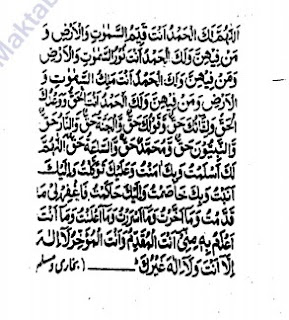 اَللّٰهُمَّ لَكَ الْحَمْدُ اَنْتَ قَيِّمُ السَّمٰوٰتِ وَالْاَرْضِ وَ
مَنْ فِيْهِنَّ وَلَكَ الْحَمْدُ اَنْتَ نُوْرُ السَّمٰوٰتِ وَالْاَرْضِ
وَمَنْ فِيْهِنَّ وَلَكَ الْحَمْدُ اَنْتَ مَلِكُ السَّمٰوٰتِ وَ
الْاَرْضِ وَمَنْ فِيْهِنَّ وَلَكَ الْحَمْدُ اَنْتَ الْحَقُّ وَوَعْدُكَ
الْحَقُّ وَلِقَآئُكَ حَقٌّ وَّقَوْلُكَ حَقٌّ وَّالْجَنَّةُ حَقٌّ وَّالنَّارُ حَقٌّ
وَّالنَّبِيُّوْنَ حَقٌّ وَّمُحَمَّدٌ حَقٌّ وَّالسَّاعَةُ حَقٌّ اَللّٰهُمَّ
لَكَ اَسْلَمْتُ وَبِكَ اٰمَنْتُ وَعَلَيْكَ تَوَكَّلْتُ وَاِلَيْكَ
اَنَبْتُ وَبِكَ خَاصَمْتُ وَاِلَيْكَ حَاكَمْتُ فَاغْفِرْلِىْ مَا
قَدَّمْتُ وَمَا اَخَّرْتُ وَمَا اَسْرَرْتُ وَمَا اَعْلَنْتُ وَمَا اَنْتَ
اَعْلَمُ بِهٖ مِنِّىْ اَنْتَ الْمُقَدِّمُ وَاَنْتَ الْمُؤَخِّرُ لَا اِلٰهَ
اِلَّا اَنْتَ وَلَا اِلٰهَ غَيْرُكَ ـــــــــ (بخاری و مسلم
Maktab